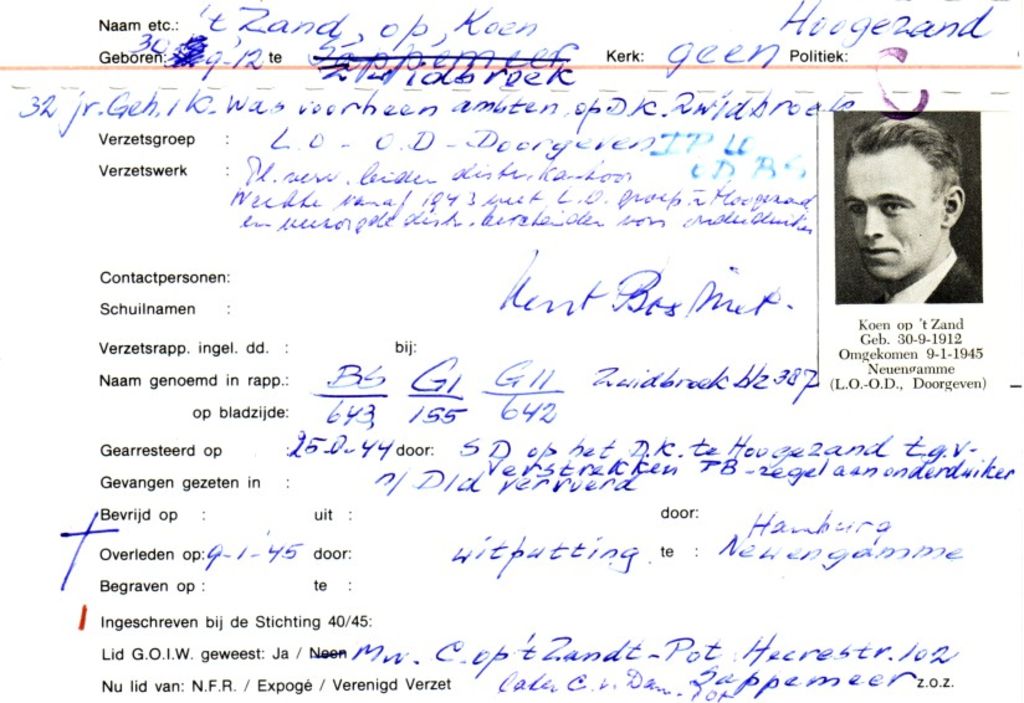 Naam etc.: 't Zand, op, Koen Hoogezand
Geboren: 30 9-'12 te Sappemeer Zuidbroek Kerk: geen Politiek:
32 jr. Geh. 1 k. Was voorheen ambten. op D.K. Zuidbroek
Verzetsgroep : L.O - O.D - Doorgeven
Verzetswerk : Pl. verv. leider distr. kantoor
Werkte vanaf 1943 met L.O. groep Hoogezand
en verzorgde distr. bescheiden voor onderduikers
Contactpersonen:
Schuilnamen :
Verzetsrapp. ingel. dd. : bij:
Naam genoemd in rapp.: BS GI GII Zuidbroek blz 387
op bladzijde: 643, 155 642
Gearresteerd op 25-8-44 door: SD op het D.K. te Hoogezand t.g.v.
verstrekken TB-zegel aan onderduiker
Gevangen gezeten in : n/ Dld vervoerd
Bevrijd op : uit : door:
Overleden op: 9-1-'45 door: uitputting te : Hamburg Neuengamme
Begraven op : te :
Ingeschreven bij de Stichting 40/45:
Lid G.O.I.W. geweest: Ja / Neen Mw. C. op 't Zandt-Pot Heerestr. 102
Nu lid van: N.F.R. / Expogé / Verenigd Verzet later C. v. Dam-Pot Sappemeer z.o.z.
Koen op 't Zand
Geb. 30-9-1912
Omgekomen 9-1-1945
Neuengamme
(L.O.-O.D., Doorgeven)